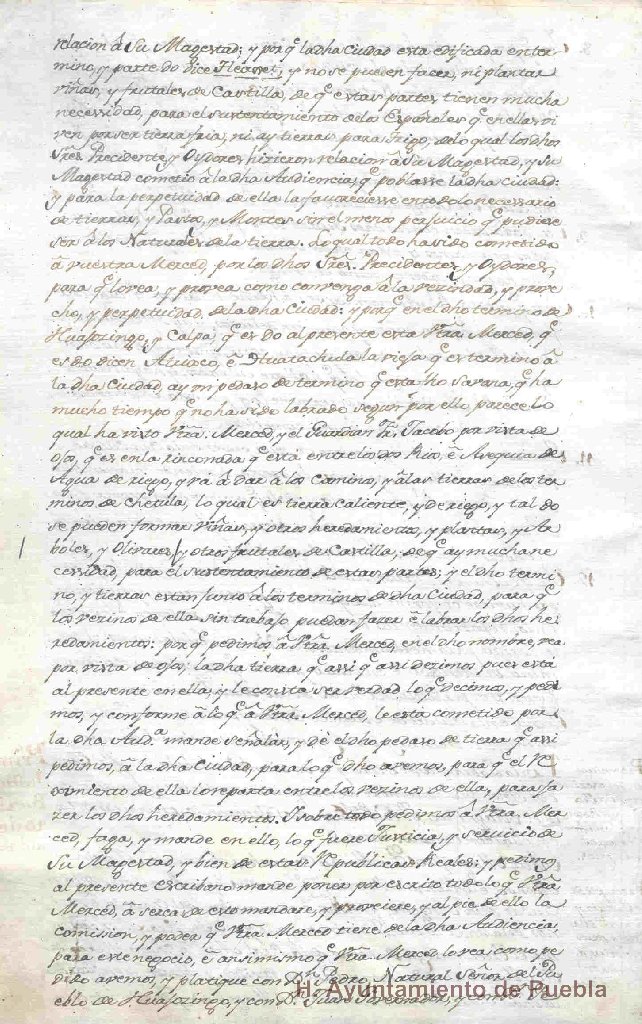 relacion â Su Magestad; y por q̃ la dha Ciudad esta edificada en ter
mino, y parte do dice y no se pueden facer, ni plantar
viñas, y frutales de Castilla, de q̃ estas partes tienen mucha
necessidad, para el sustentamiento de la Españoles q̃ en ellas vi
ven por ser tierra fria; ni ay tierras para trigo, de lo qual los dhos
Sres. Precidente, y Oydores, hizieron relacion â Su Magestad, y Su
Magestad cometiò â la dha Audiencia, q̃ poblasse la dha Ciudad:
y para la perpetuidad de ella la faureciesse en todo lo necessario
de tierras, y Pastos, y Montes sin el menos perjuicio q̃ pudiese
ser â los Naturales de la tierra. Lo qual todo ha sido cometido
â vuestra Merced, por los dhos Sres. Precidente, y Oydores,
para q̃ lo rea, y provea como convenga â la vezindad, y prove
cho, y perpetuidad, de la dha Ciudad: y porq̃ en el dho termino de
Huajozingo, y Calpa, q̃ es do al presente esta Vtra. Merced, q̃
es do dicen Atlixco, ê la vieja q̃ es termino â
la dha Ciudad, ay un pedaso de termino q̃ esta fho Savana, q̃ ha
mucho tiempo q̃ no ha sido labrado segun por ello parece lo
qual ha visto Vtra. Merced, y el Guardian Fr. Jacobo por vista de
ojos, q̃ es en la rinconada q̃ está entre los dos Rios, ê Asequia de
Agua de riego, q̃ vâ â dar â los Caminos, y â las tierras de los ter
minos de Chetula, lo qual es tierra caliente, y de riego, y tal do
se pueden formar viñas, y otros heredamientos, y plantas, y Ar
boles, y Olivares, y otros frutales de Castilla, de q̃ ay mucha ne
cessidad, para el sustentamiento de estas partes; y el dho termi
no, y tierras estan junto â los terminos de dha Ciudad, para q̃
los vezinos de ella sin trabajo puedan facer ê labrar los dhos he
redamientos: por q̃ pedimos â Vtra. Merced, en el dho nombre, vea
por vista de ojos; la dha tierra q̃ assi q̃ assi dezimos pues está
al presente en ella, y le consta ser verdad lo q̃ decimos, y pedi
mos, y conforme â lo q̃ â Vtra. Merced, le està cometido por
la dha Auda. mande señalar, y dè el dho pedaso de tierra q̃ assi
pedimos, â la dha Ciudad, para lo q̃ dho avemos, para q̃ el
simiento de ella lo reparta entre los vezinos de ella, para fa
zer los dhos heredamientos. Y sobre todo pedimos â Vtra. Mer
ced, faga, y mande en ello, lo q̃ fuere Justicia, y servicio de
Su Magestad, y bien de estas Republicas Reales: y pedimos
al presente Escribano mande poner por escrito todo lo q̃ Vtra.
Merced, â serca de esto mandare, y proveiere, y al pie de ello la
comision, y poder q̃ Vtra. Merced tiene de la dha Audiencia,
para este negocio, ê ansimismo q̃ Vtra. Merced lo vea como pe
dido avemos, y platique con Dn. Pedro, Natural Señor del Pu
eblo de Huajozingo, y con Dn. Juan y con
H. Ayuntamiento de Puebla